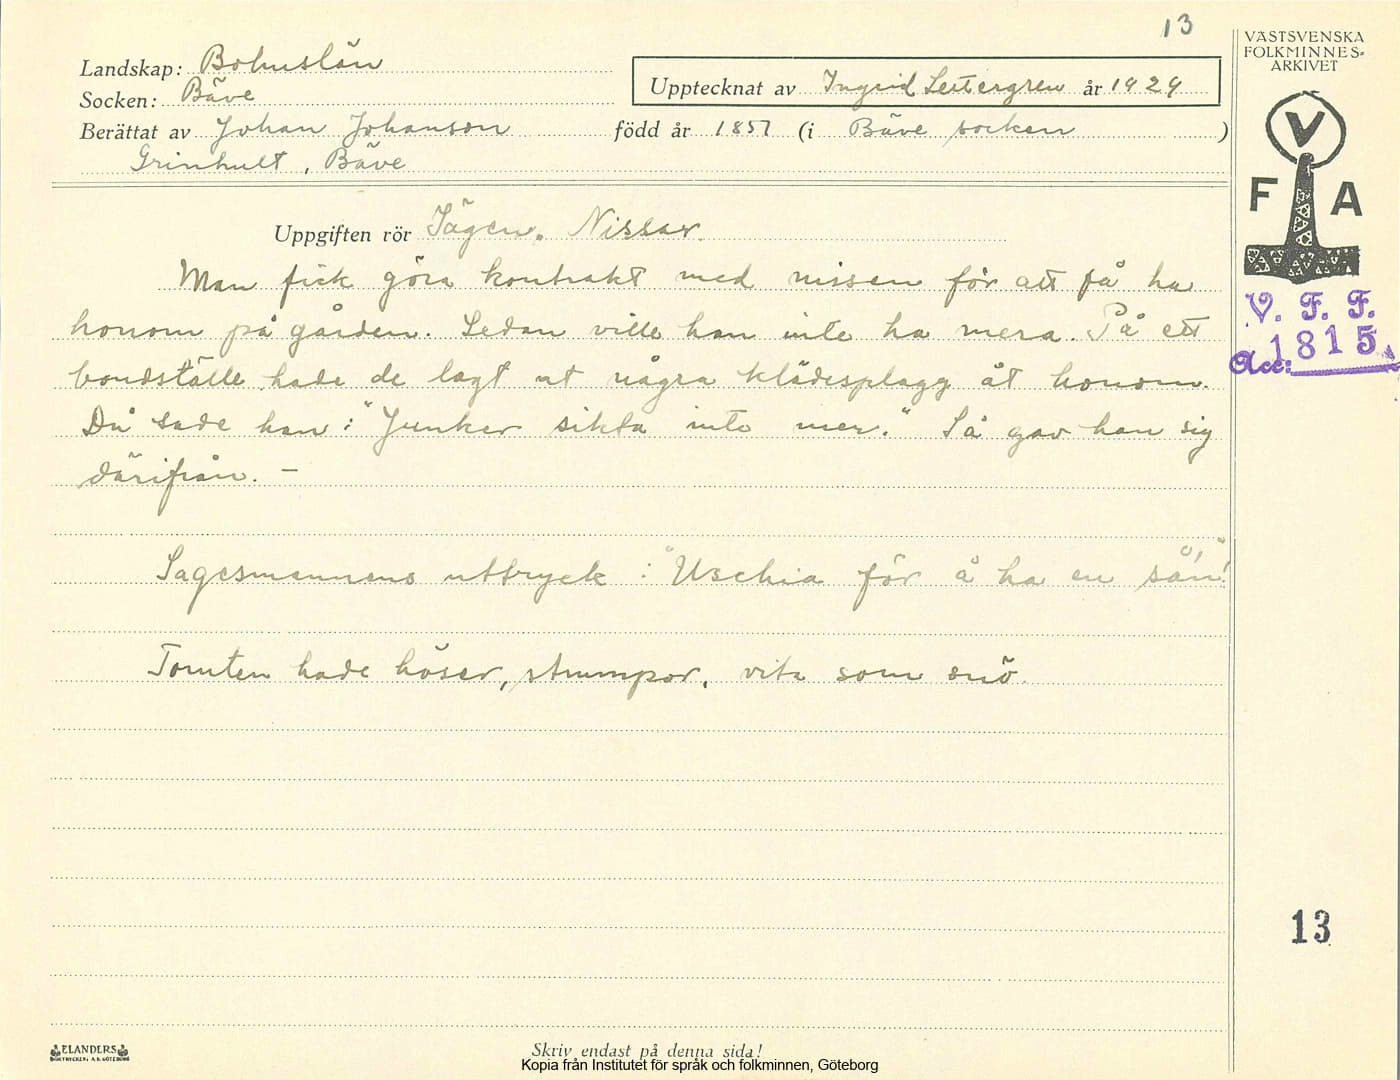 13
Landskap: Bohuslän
Socken: Bäve
Upptecknat av Ingrid år 1929
Berättat av Johan Johanson född år 1857 (i Bäve socken)
Grinhult, Bäve
Uppgiften rör Sägen. Nissar.
Man fick göra kontrakt med nissen för att få ha
honom på gården. Sedan ville han inte ha mera. På ett
bondställe hade de lagt ut några klädesplagg åt honom.
Då sade han: "Junker sikta inte mer." Så gav han sig
därifrån. –
Sagesmannens uttryck: "Uschia för å ha en sån!"
Tomten hade höser, strumpor, vita som snö.
VÄSTSVENSKA
FOLKMINNES-
ARKIVET
V
F A
V. F. F.
Acc: 1815
13
ELANDERS
BOKTRYCKERI A.B. GÖTEBORG
Skriv endast på denna sida!
Kopia från Institutet för språk och folkminnen, Göteborg